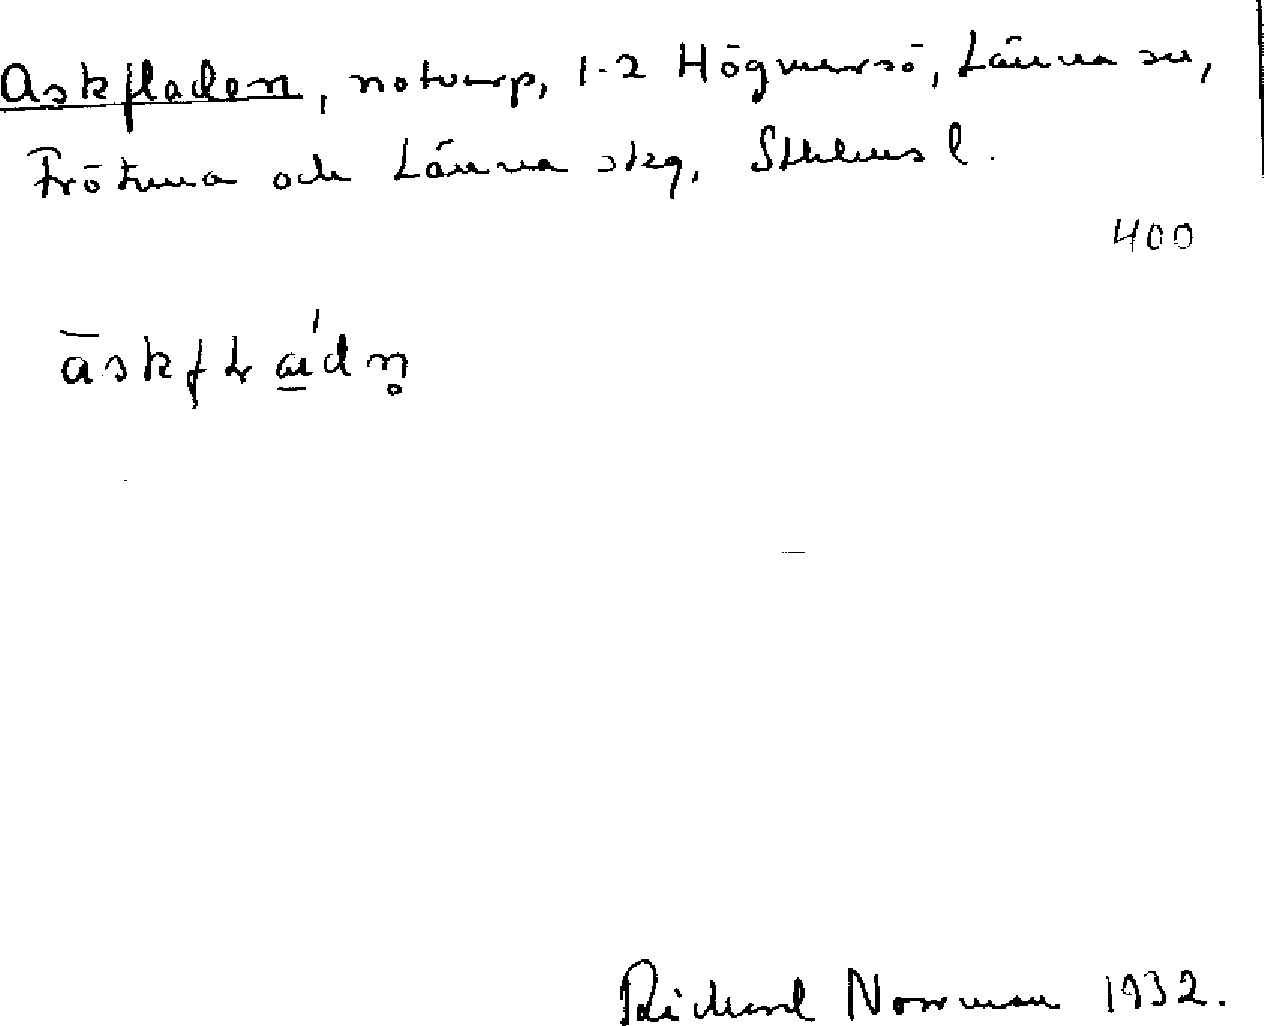 Askfladen, notvarp, 1-2 Högmarsö, Länna sn,
Frötuna och Länna skg, Sthlms l.
400
Richard Norrman 1932.